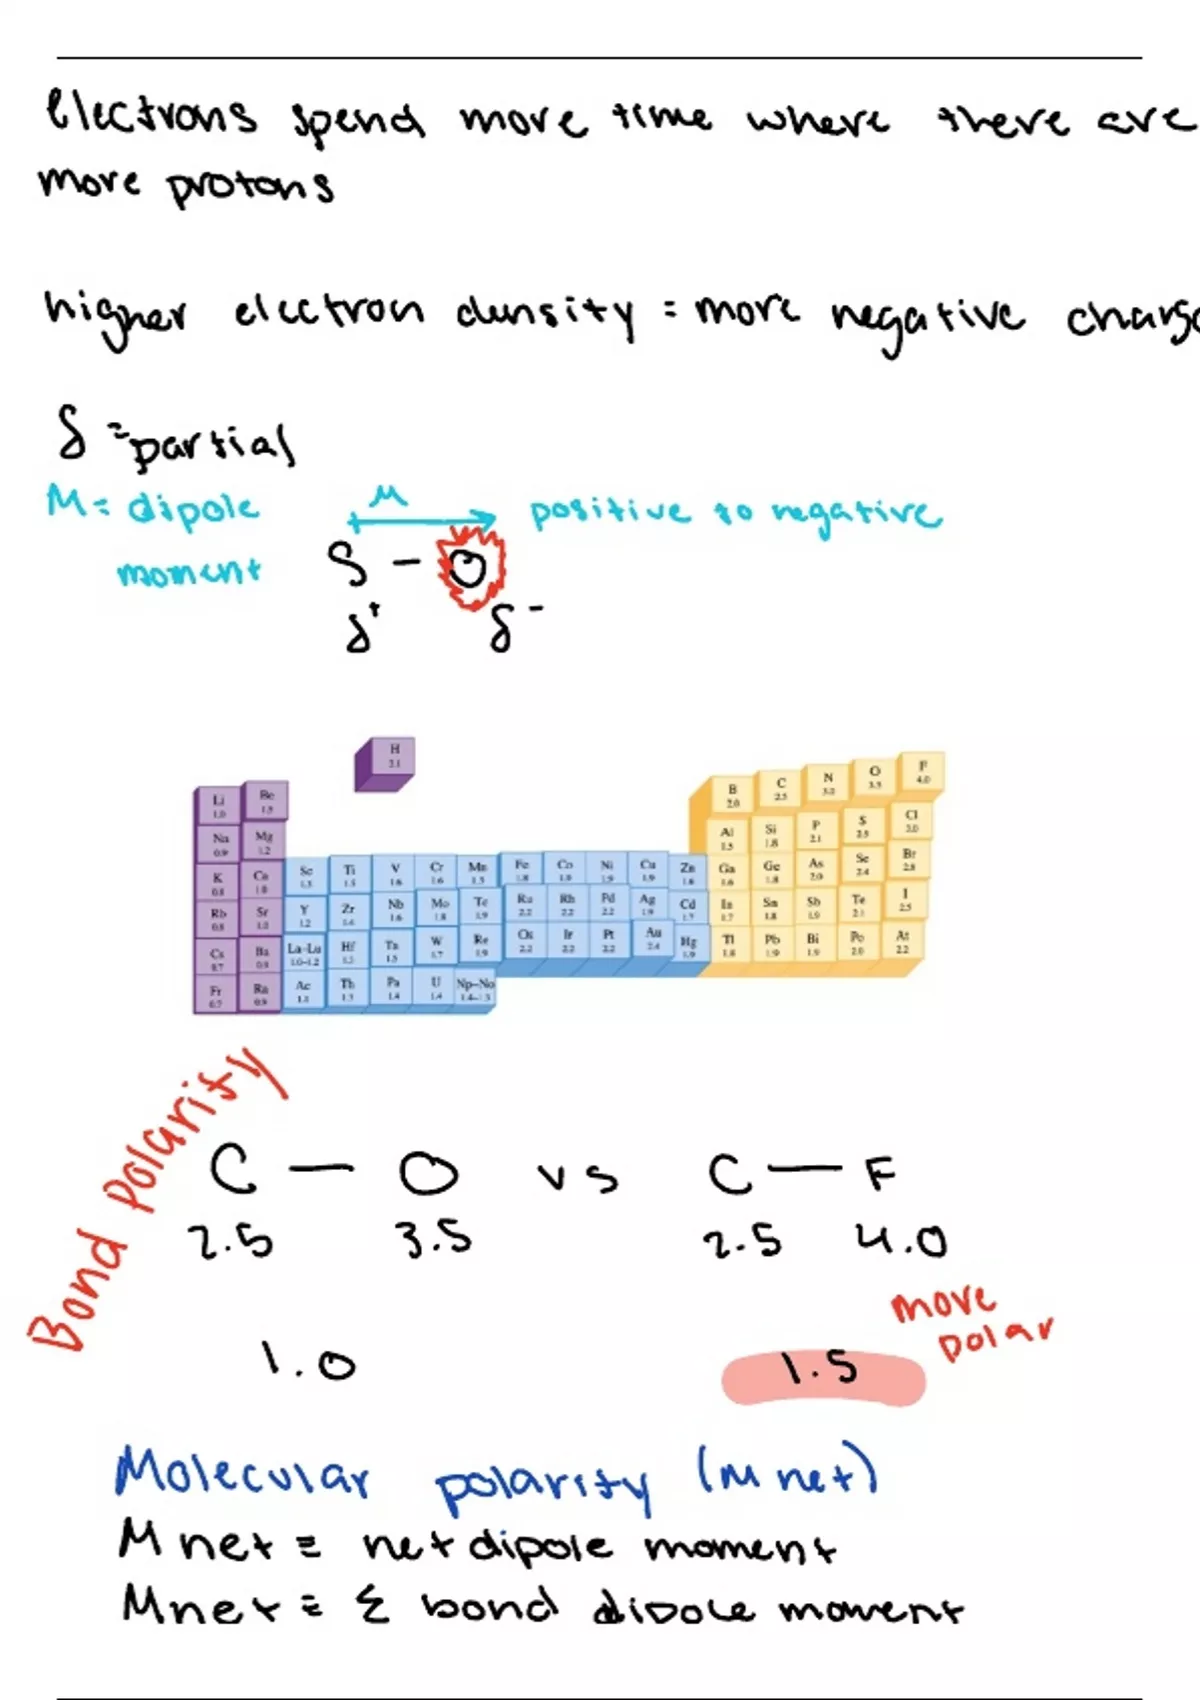 electrons spend more time where there are
more protons
higher electron density = more negative
δ = partial
M = dipole
moment
M
positive to negative
S - O
δ+ δ-
H
2.1
Li Be B C N O F
1.0 1.5 2.0 2.5 3.0 3.5 4.0
Na Mg Al Si P S Cl
0.9 1.2 1.5 1.8 2.1 2.5 3.0
K Ca Sc Ti V Cr Mn Fe Co Ni Cu Zn Ga Ge As Se Br
0.8 1.0 1.3 1.5 1.6 1.6 1.5 1.8 1.8 1.9 1.9 1.6 1.6 1.8 2.0 2.4 2.8
Rb Sr Y Zr Nb Mo Tc Ru Rh Pd Ag Cd In Sn Sb Te I
0.8 1.0 1.2 1.4 1.6 1.8 1.9 2.2 2.2 2.2 1.9 1.7 1.7 1.8 1.9 2.1 2.5
Cs Ba La–Lu Hf Ta W Re Os Ir Pt Au Hg Tl Pb Bi Po At
0.7 0.9 1.0–1.2 1.3 1.5 1.7 1.9 2.2 2.2 2.2 2.4 1.9 1.8 1.9 1.9 2.0 2.2
Fr Ra Ac Th Pa U Np–No
0.7 0.9 1.1 1.3 1.4 1.4 1.4–1.3
Bond Polarity
C — O vs C — F
2.5 3.5 2.5 4.0
more
polar
1.0 1.5
Molecular polarity (M net)
M net = net dipole moment
M net = Σ bond dipole moment